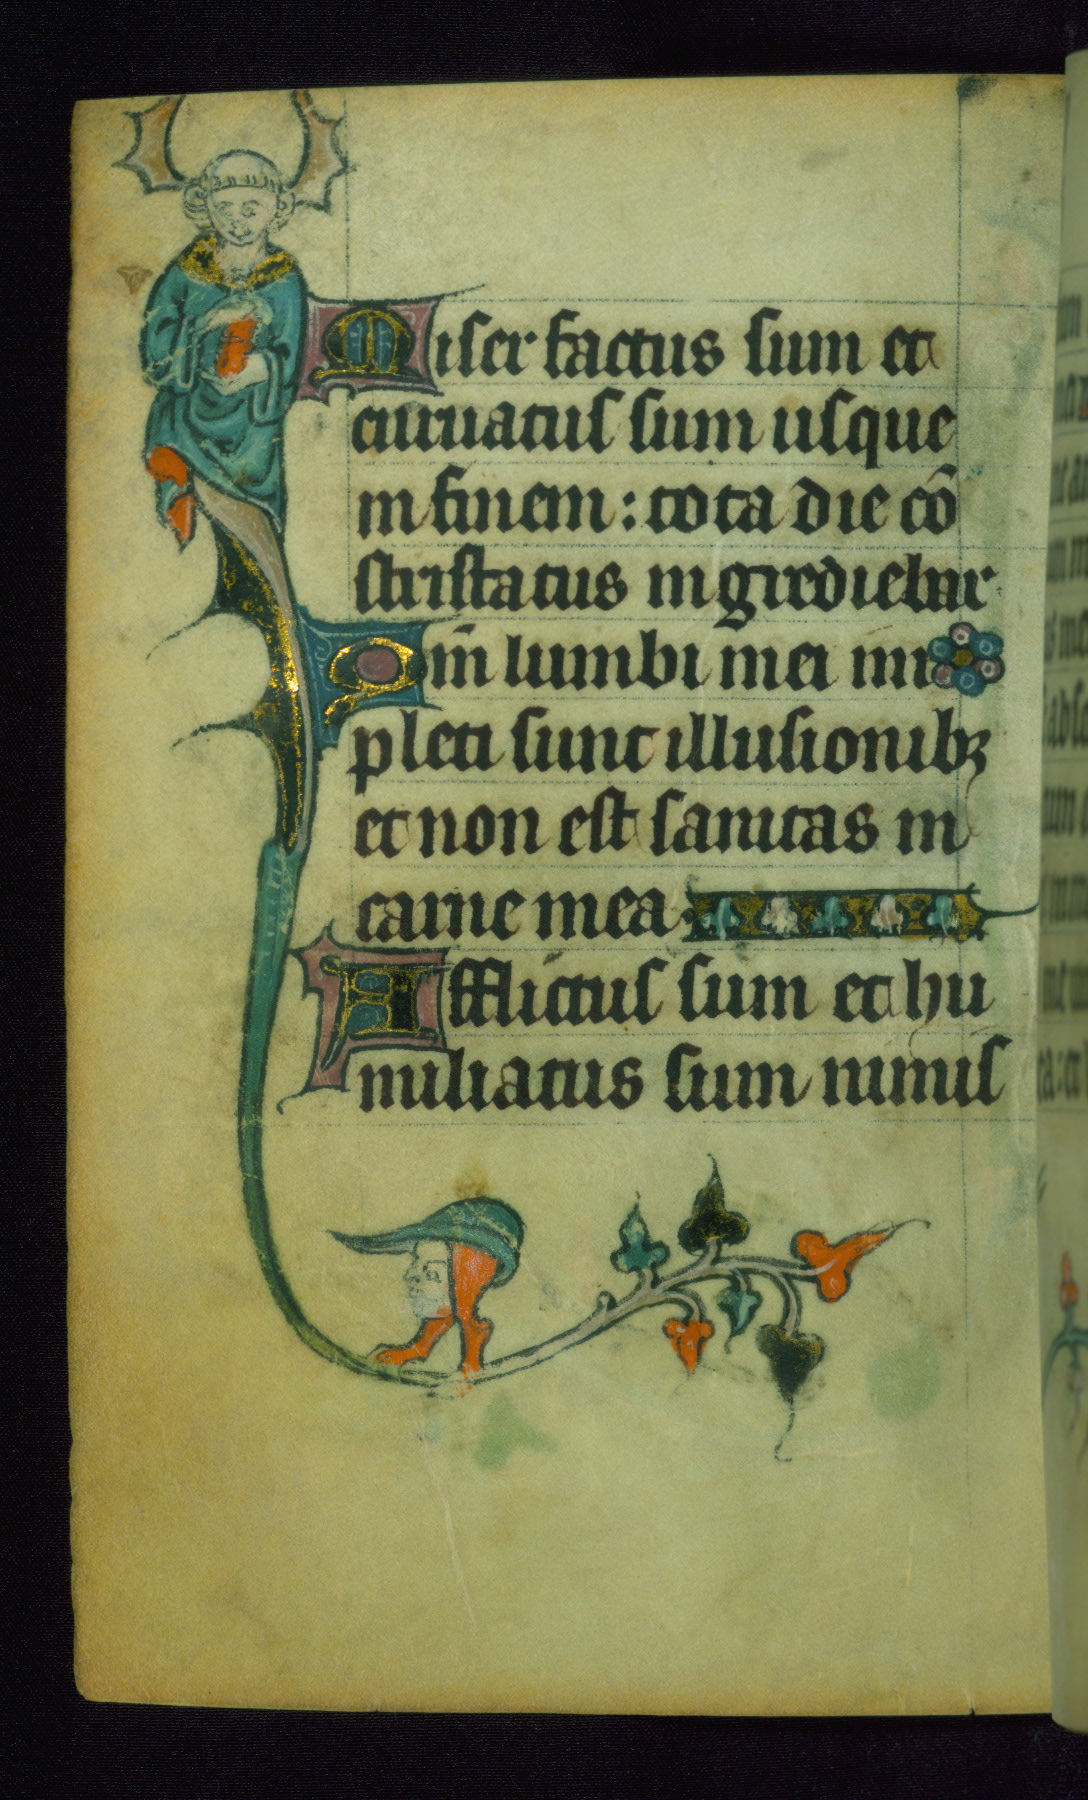 Miser factus sum et
curuatus sum usque
in finem : tota die cō
stristatus ingrediebar
Qm̄ lumbi mei im
pleti sunt illusionibꝫ
et non est sanitas in
carne mea
Afflictus sum et hu
miliatus sum nimis